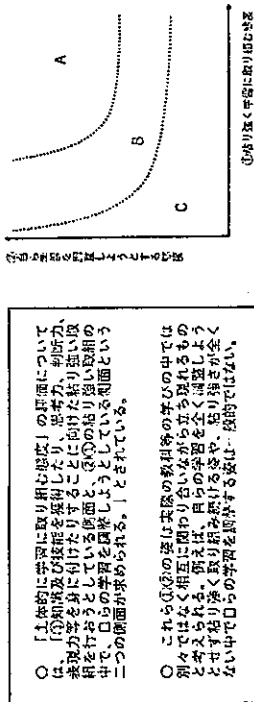 ○ 「主体的に学習に取り組む態度」の評価について
は、「①知識及び技能を獲得したり、思考力、判断力、
表現力等を身に付けたりすることに向けた粘り強い取
組を行おうとしている側面と、②①の粘り強い取組の
中で、自らの学習を調整しようとしている側面という
二つの側面が求められる。」とされている。
○ これら①②の姿は実際の教科等の学びの中では
別々ではなく相互に関わり合いながら立ち現れるもの
と考えられる。例えば、自らの学習を全く調整しよう
とせず粘り強く取り組み続ける姿や、粘り強さが全く
ない中で自らの学習を調整する姿は一般的ではない。
②自ら学習を調整しようとする態度
A
B
C
①粘り強く学習に取り組む態度